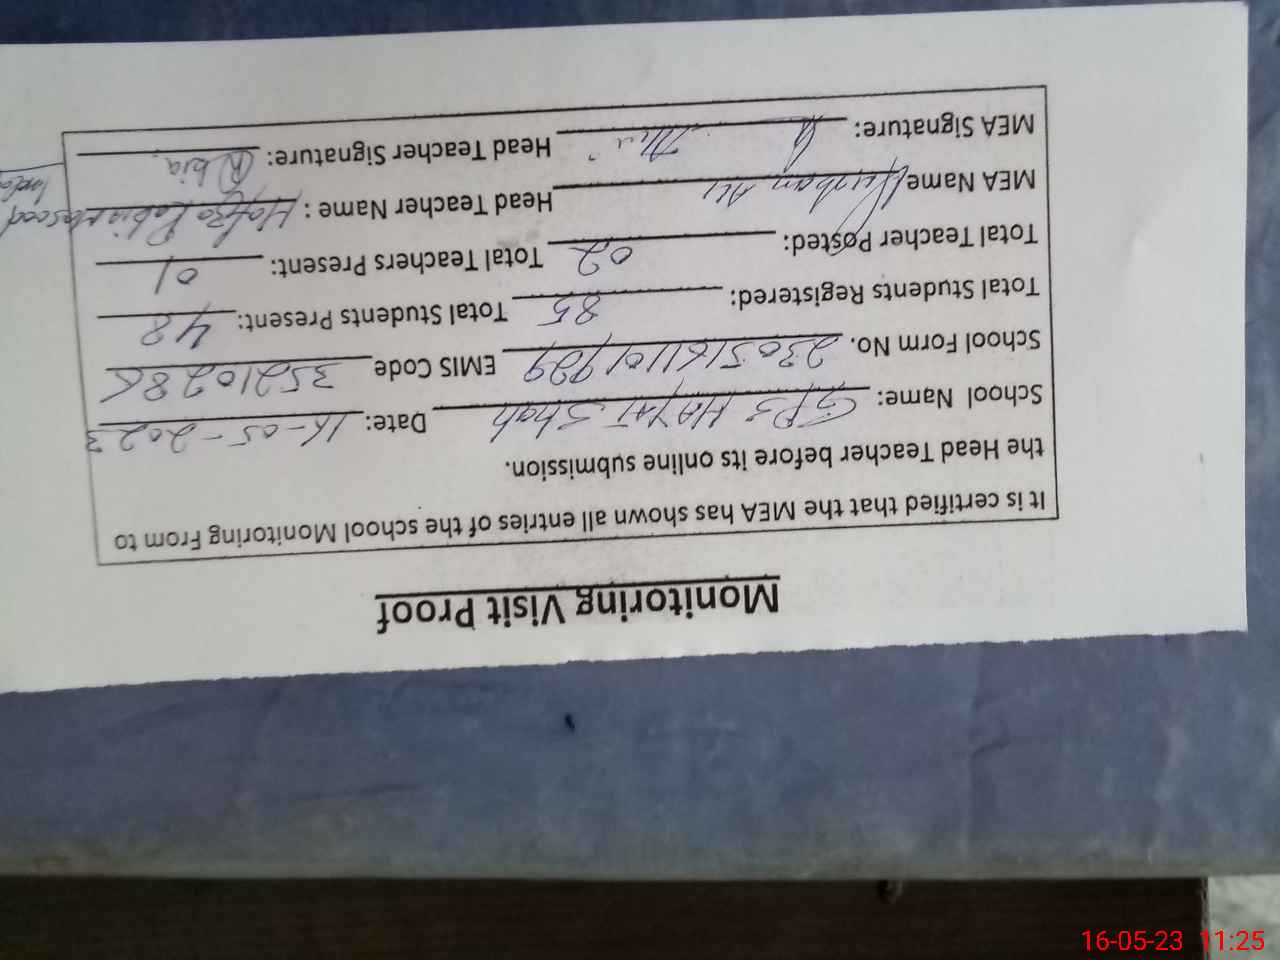 Monitoring Visit Proof
It is certified that the MEA has shown all entries of the school Monitoring From to
the Head Teacher before its online submission.
School Name: GPS HAYAT Shah Date: 16-05-2023
School Form No. EMIS Code
Total Students Registered: 85 Total Students Present: 48
Total Teacher Posted: 02 Total Teachers Present: 01
MEA Name Ali Head Teacher Name : Hafza Rabia Masood
MEA Signature: Head Teacher Signature: Rbia
16-05-23 11:25